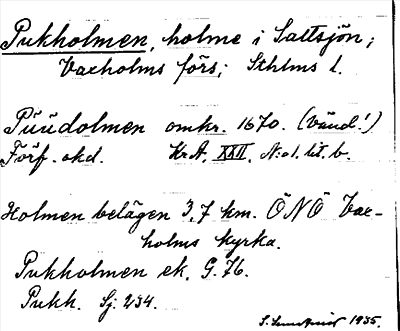 Pukholmen, holme i Saltsjön;
Vaxholms förs; Sthlms l.
Püüdolmen omkr. 1670. (vänd!)
Förf. okd. KrA. XXII, N:o1. lit. b.
Holmen belägen 3,7 km. ÖNÖ Vax-
holms kyrka.
Pukholmen ek. G. 76.
Pukh. Sj: 234.
1935.